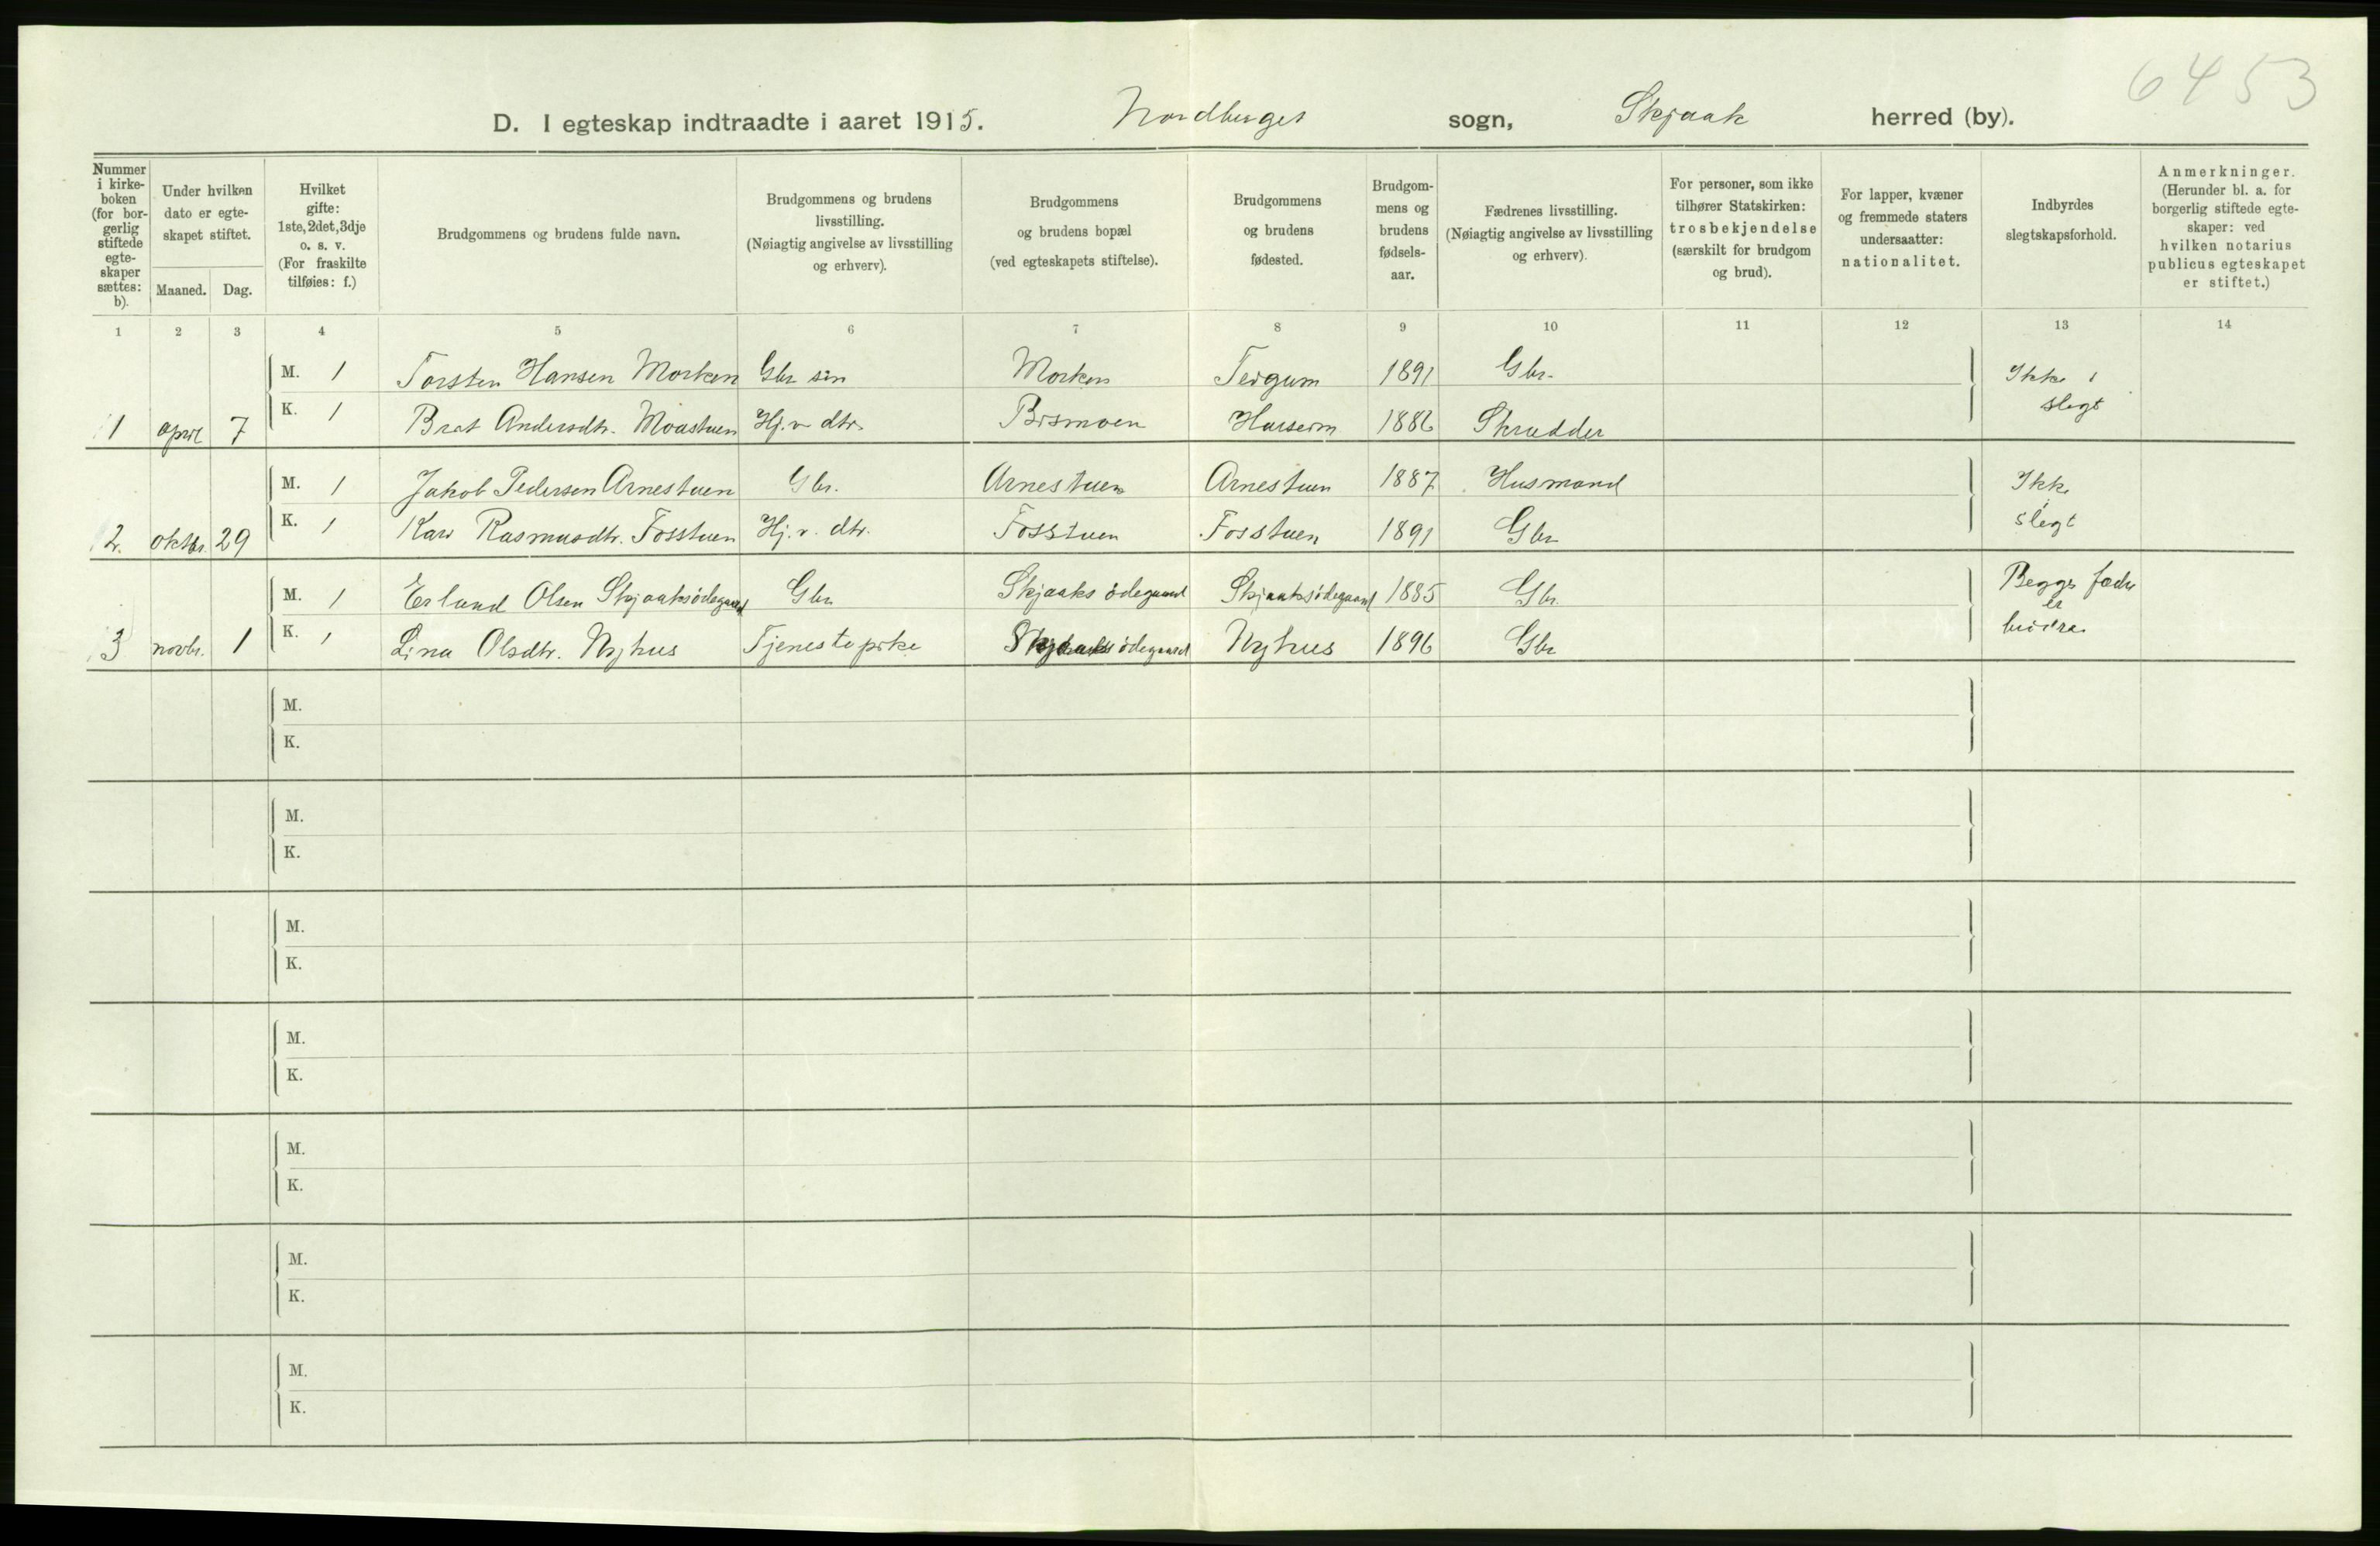 6453
D. I egteskap indtraadte i aaret 1915. Nordberget sogn, Skjaak herred (by).
Nummer i kirke-boken (for bor-gerlig stiftede egte-skaper sættes: b).
Under hvilken dato er egte-skapet stiftet.
Maaned. Dag.
Hvilket gifte: 1ste, 2det, 3dje o. s. v. (For fraskilte tilføies: f.)
Brudgommens og brudens fulde navn.
Brudgommens og brudens livsstilling. (Nøiagtig angivelse av livsstilling og erhverv).
Brudgommens og brudens bopæl (ved egteskapets stiftelse).
Brudgommens og brudens fødested.
Brudgom-mens og brudens fødsels-aar.
Fædrenes livsstilling. (Nøiagtig angivelse av livsstilling og erhverv).
For personer, som ikke tilhører Statskirken: trosbekjendelse (særskilt for brudgom og brud).
For lapper, kvæner og fremmede staters undersaatter: nationalitet.
Indbyrdes slegtskapsforhold.
Anmerkninger. (Herunder bl. a. for borgerlig stiftede egte-skaper: ved hvilken notarius publicus egteskapet er stiftet.)
1 2 3 4 5 6 7 8 9 10 11 12 13 14
M. 1 Torsten Hansen Morken Gbr. søn Morken Teigum 1891 Gbr. Ikke i
1 april 7 K. 1 Brit Andersdtr. Moastuen Hj. v. dtr. Bismoen 1886 Skrædder slegt
M. 1 Jakob Pedersen Arnestuen Gbr. Arnestuen Arnestuen 1887 Husmand Ikke
2. oktbr. 29 K. 1 Kari Rasmusdtr. Fosstuen Hj. v. dtr. Fosstuen Fosstuen 1891 Gbr. slegt
M. 1 Erland Olsen Skjaaksødegaard Gbr. Skjaaksødegaard Skjaaksødegaard 1885 Gbr. Begges fædre
er
3 novbr. 1 K. 1 Lina Olsdtr. Nyhus Tjenestepike Skjaaksødegaard Nyhus 1896 Gbr. brødre
M.
K.
M.
K.
M.
K.
M.
K.
M.
K.
M.
K.
M.
K.